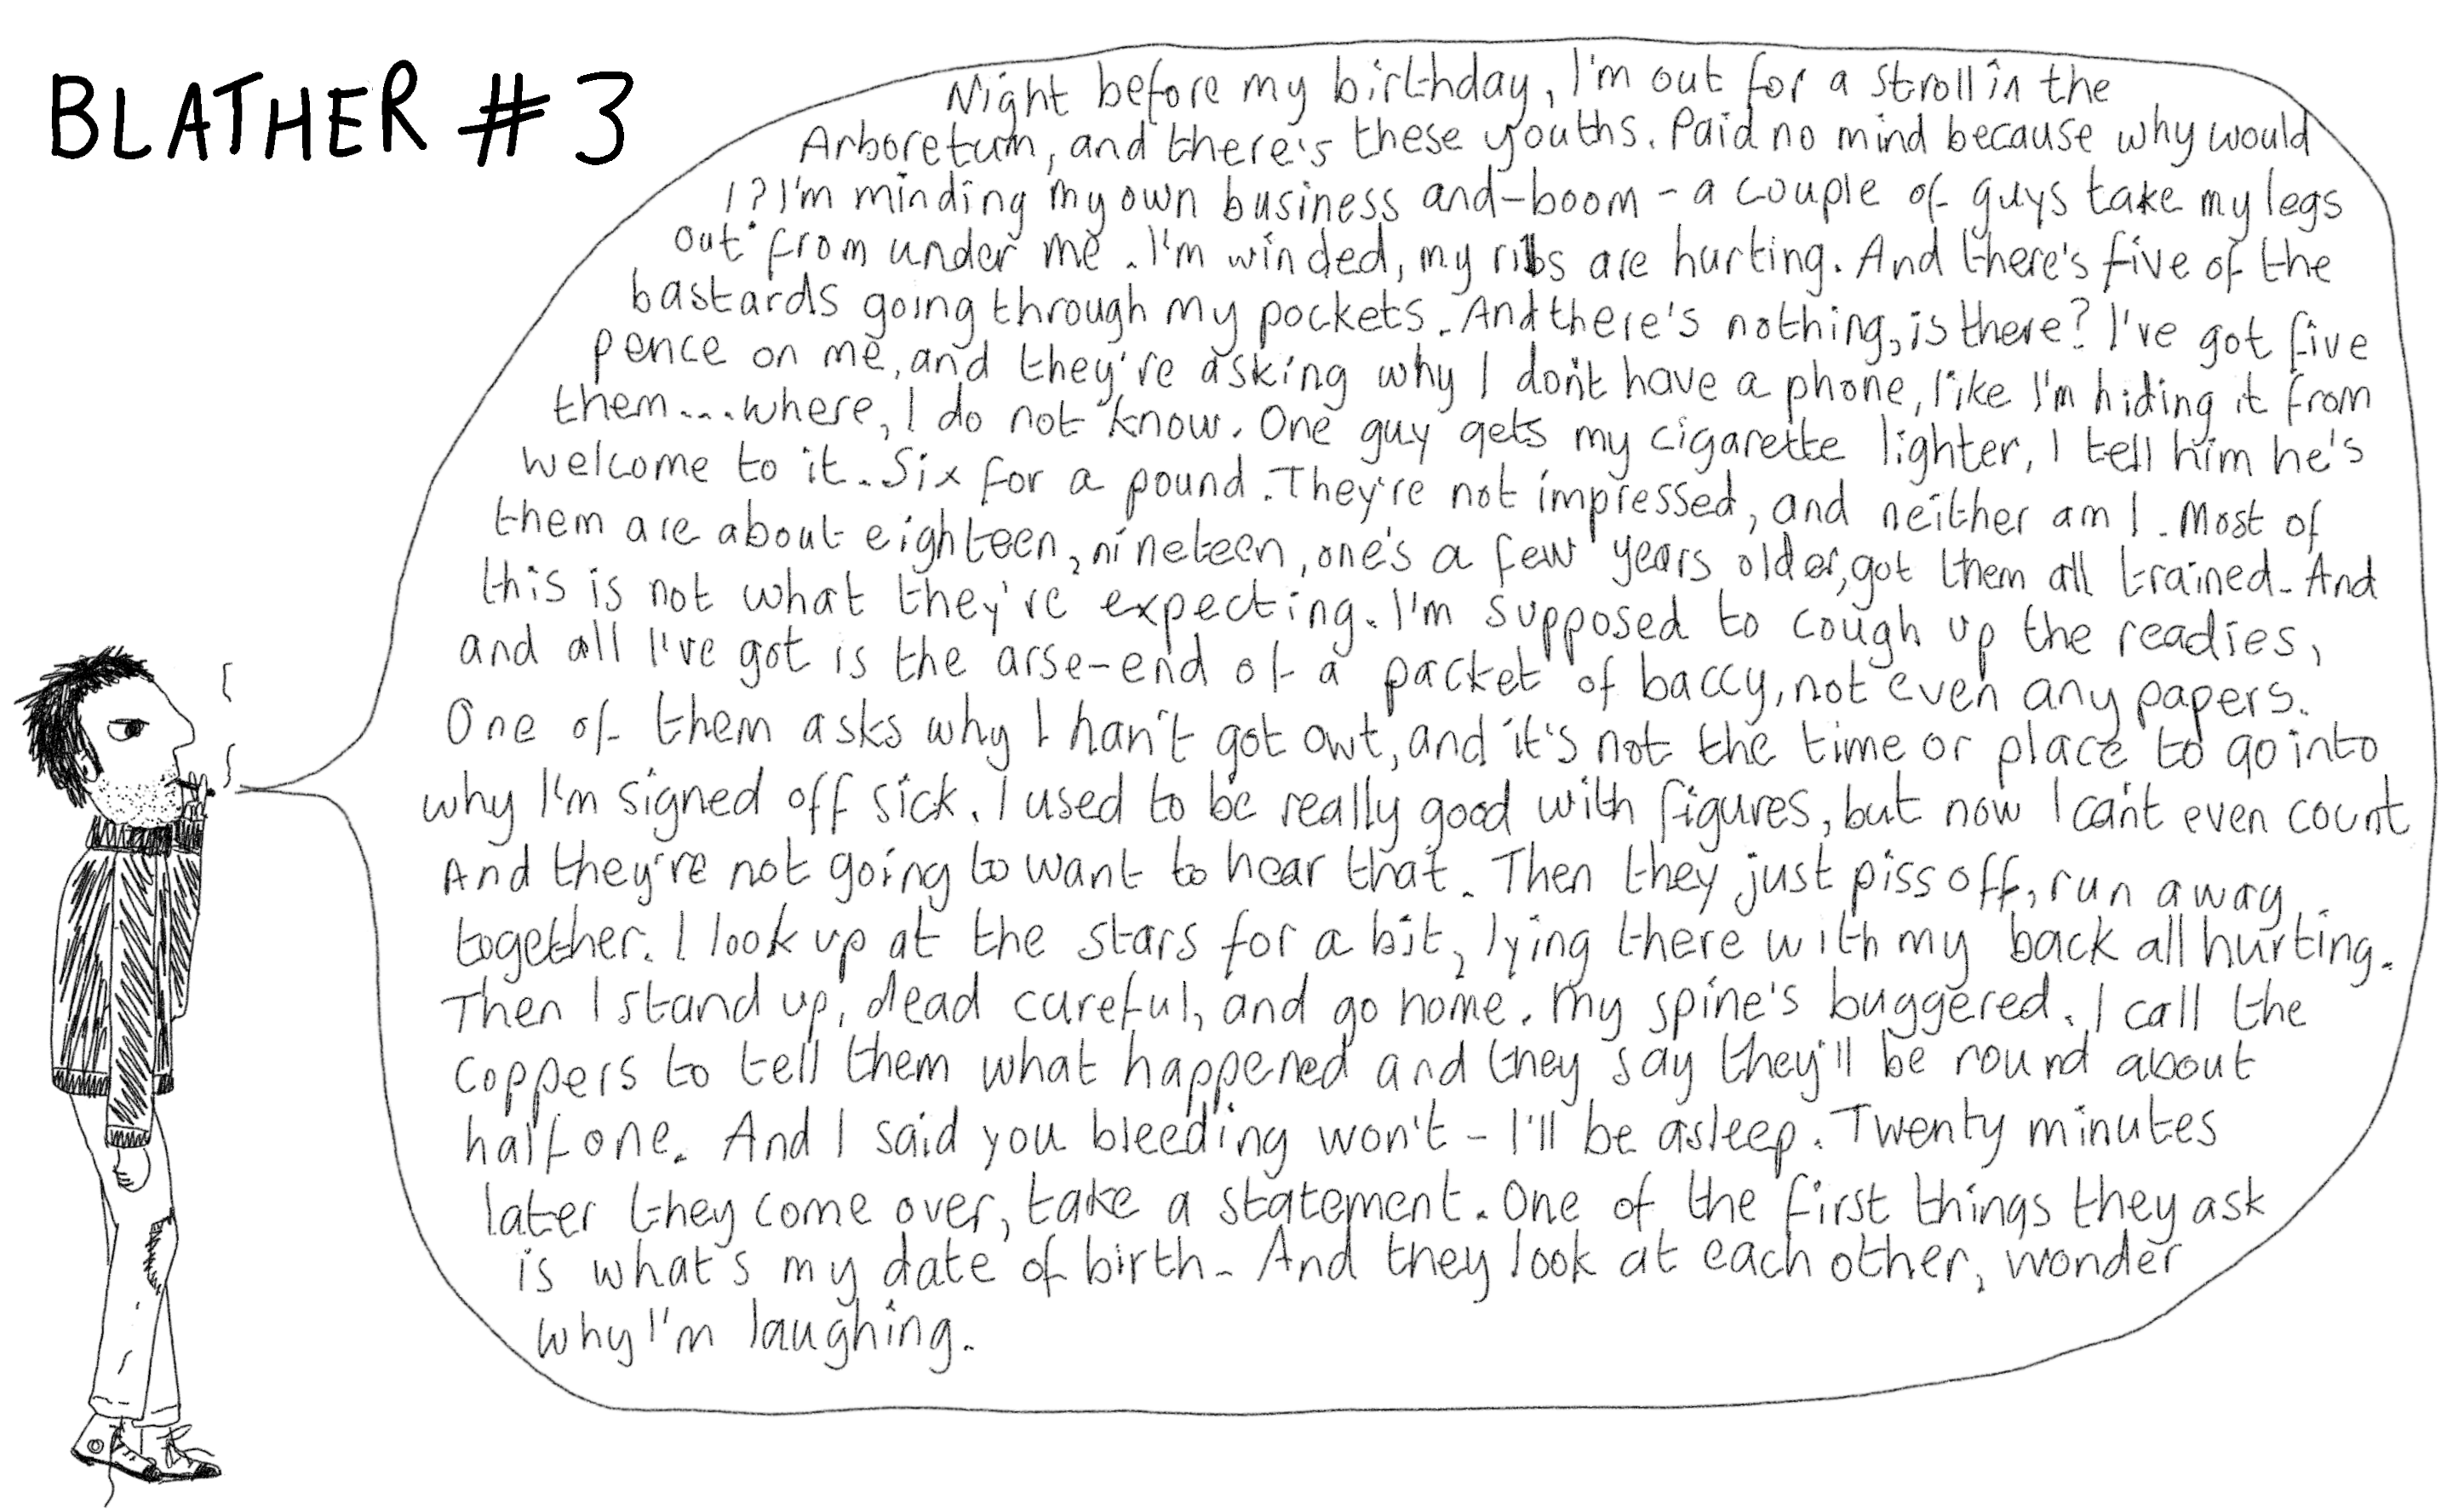 BLATHER #3
Night before my birthday, I'm out for a stroll in the
Arboretum, and there's these youths. Paid no mind because why would
I? I'm minding my own business and-boom - a couple of guys take my legs
out from under me. I'm winded, my ribs are hurting. And there's five of the
bastards going through my pockets. And there's nothing, is there? I've got five
pence on me, and they're asking why I don't have a phone, like I'm hiding it from
them....where, I do not know. One guy gets my cigarette lighter, I tell him he's
welcome to it. Six for a pound. They're not impressed, and neither am I. Most of
them are about eighteen, nineteen, one's a few years older, got them all trained. And
this is not what they're expecting. I'm supposed to cough up the readies,
and all I've got is the arse-end of a packet of baccy, not even any papers.
One of them asks why I han't got owt, and it's not the time or place to go into
why I'm signed off sick. I used to be really good with figures, but now I can't even count
And they're not going to want to hear that. Then they just piss off, run away
together. I look up at the stars for a bit, lying there with my back all hurting.
Then I stand up, dead careful, and go home. My spine's buggered. I call the
coppers to tell them what happened and they say they'll be round about
half one. And I said you bleeding won't - I'll be asleep. Twenty minutes
later they come over, take a statement. One of the first things they ask
is what's my date of birth. And they look at each other, wonder
why I'm laughing.